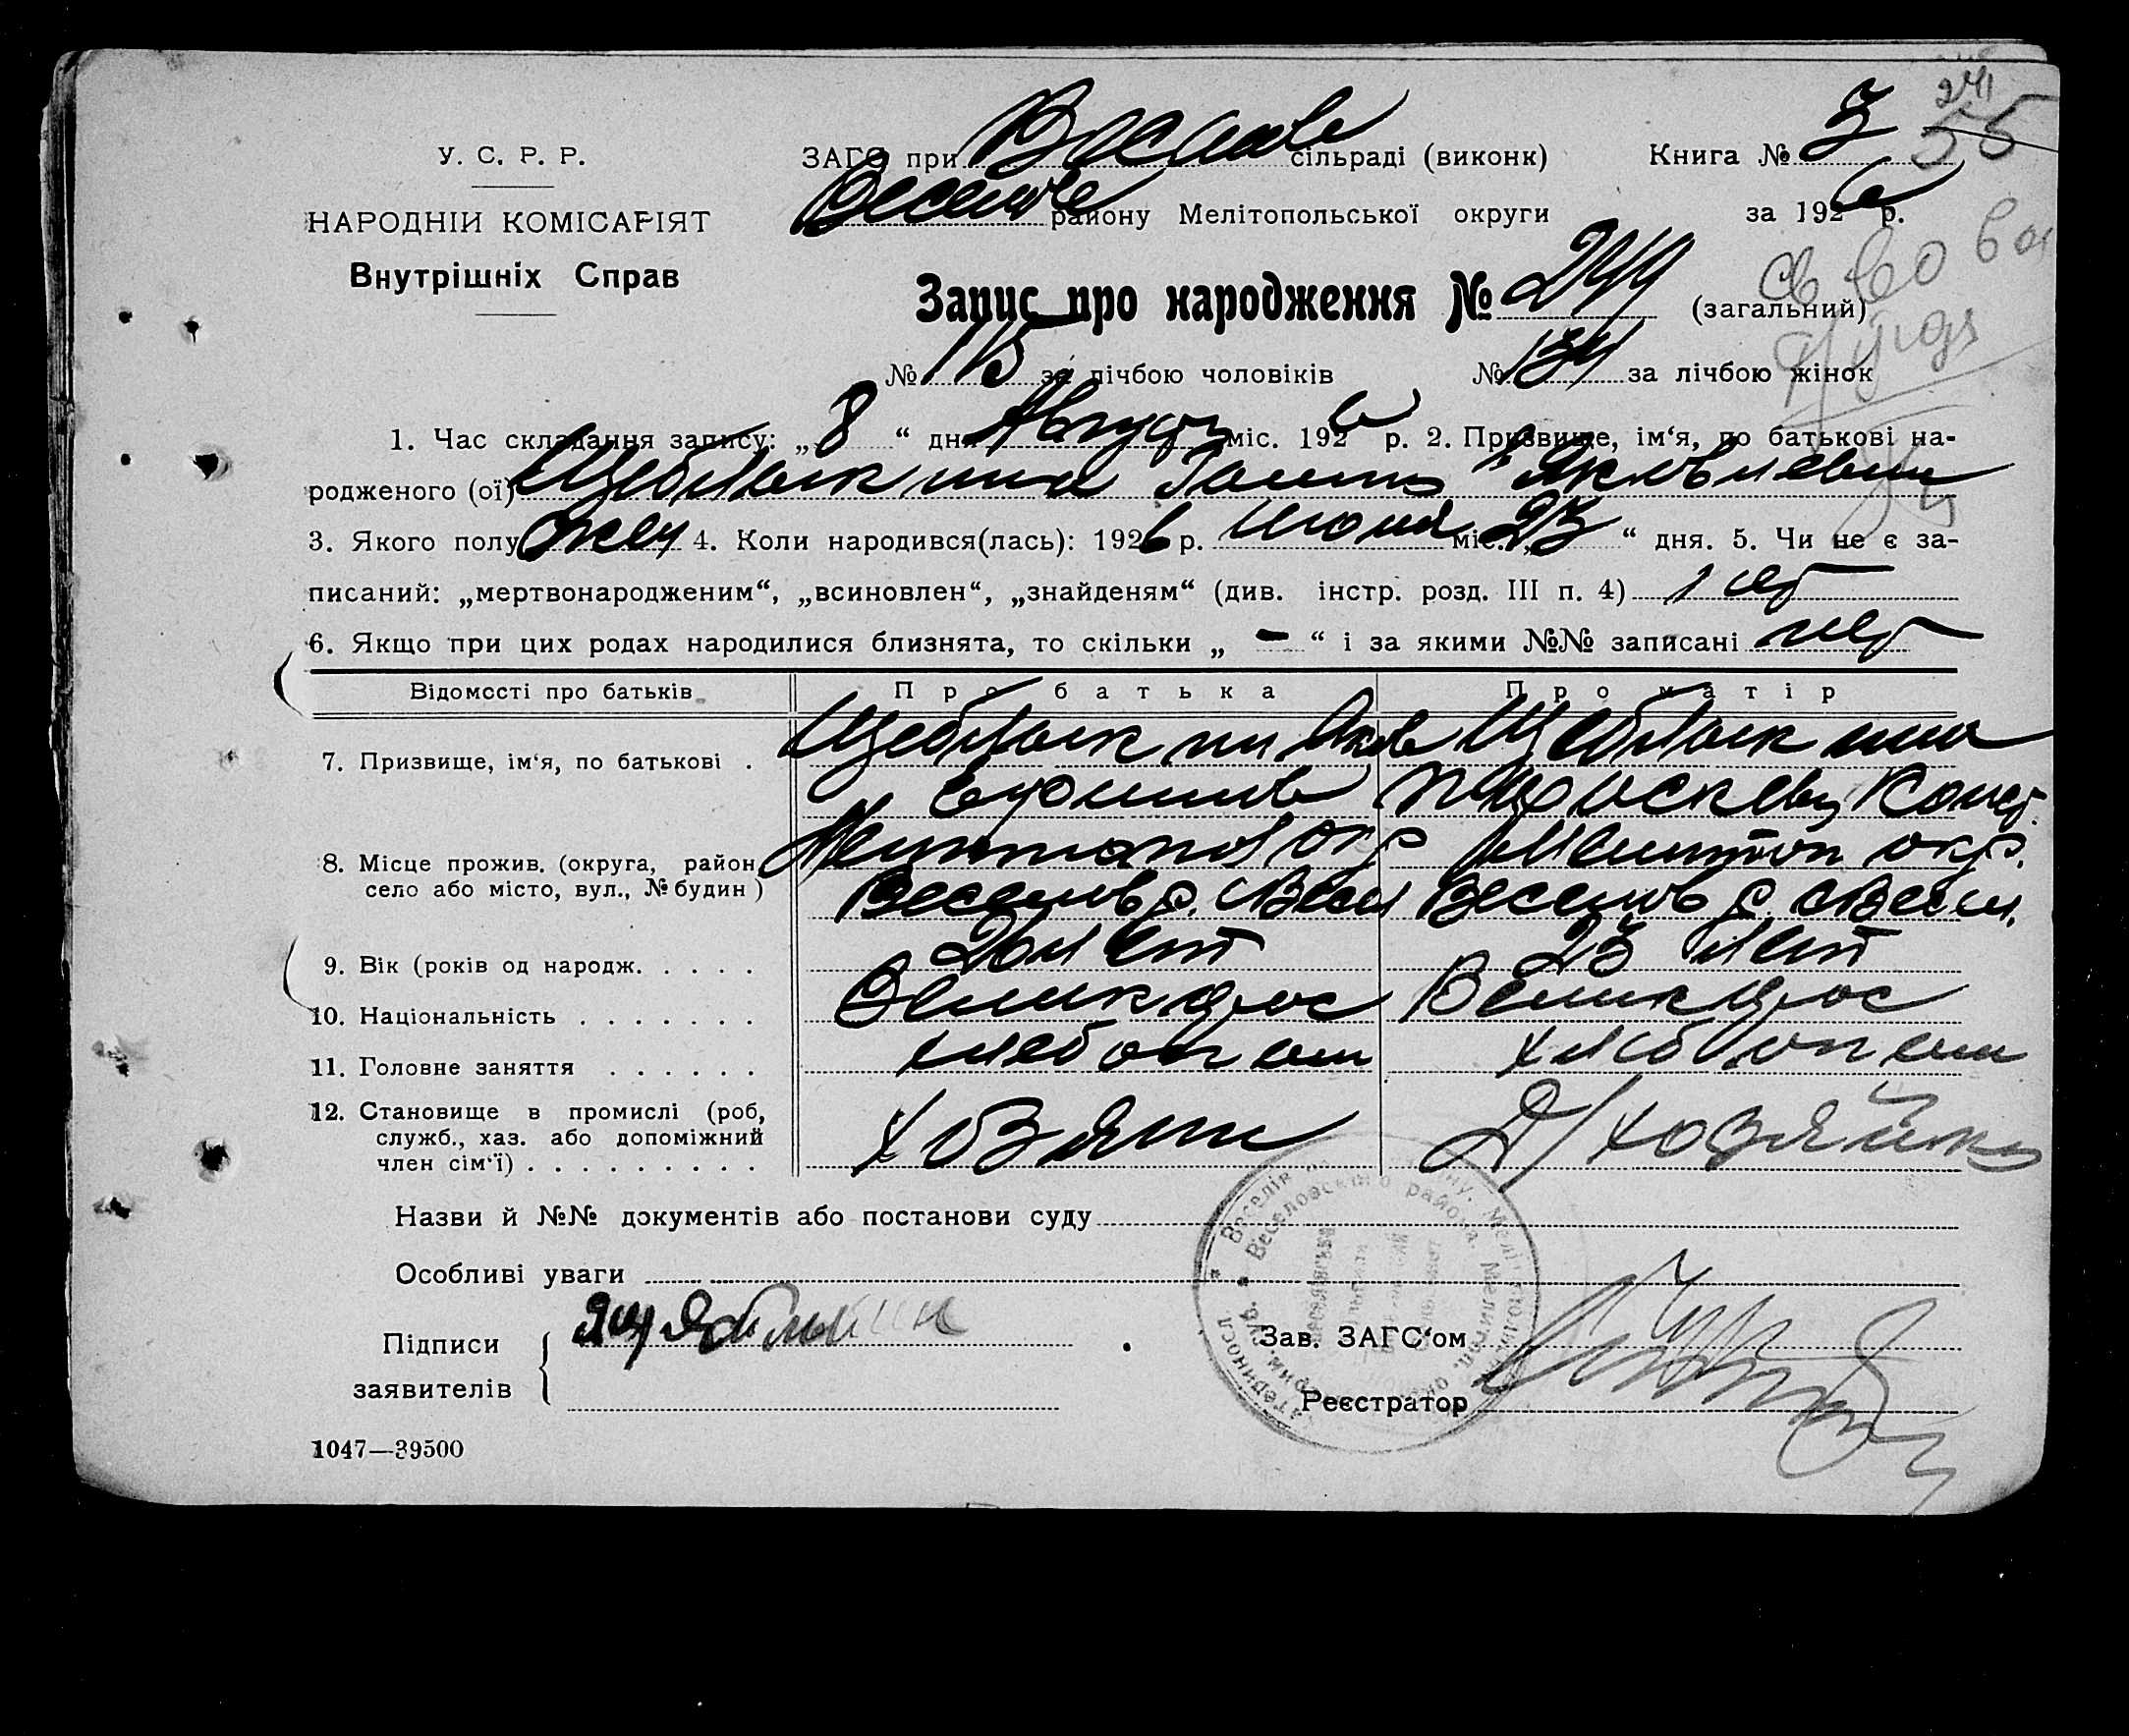 241
55
У. С. Р. Р.
ЗАГС при Веселов сільраді (виконк) Книга № 3
НАРОДНІЙ КОМІСАРІЯТ
Веселов району Мелітопольської округи за 1926 р.
Внутрішніх Справ
Запис про народження № 249 (загальний)
№ 115 за лічбою чоловіків № 134 за лічбою жінок
1. Час складання запису: „ 8 “ дня Август міс. 1926 р. 2. Призвище, ім‘я, по батькові на-
родженого (ої) Щеблыкина Яковлевна
3. Якого полу жен 4. Коли народився(лась): 1926 р. міс. „ 23 “ дня. 5. Чи не є за-
писаний: „мертвонародженим“, „всиновлен“, „знайденям“ (див. інстр. розд. III п. 4) нет
6. Якщо при цих родах народилися близнята, то скільки „ — “ і за якими №№ записані нет
Відомості про батьків Про батька Про матір
7. Призвище, ім‘я, по батькові . Щеблыкин Яков Щеблыкина
Ефимов Прасковья Конст.
8. Місце прожив. (округа, район, Мелитопол окр Мелитоп окр.
село або місто, вул., № будин) Веселов р. с Весел Веселов р. с Весел.
9. Вік (років од народж. . . . . лет 23 лет
10. Національність . . . . . . . Великорос Великорос
11. Головне заняття . . . . . . хлебопаш хлебопаш
12. Становище в промислі (роб, Хозяин Д/хозяйка
служб., хаз. або допоміжний
член сім‘ї) . . . . . . . . .
Назви й №№ документів або постанови суду
Особливі уваги
Підписи
заявителів
Зав. ЗАГС‘ом
Реєстратор
1047—39500